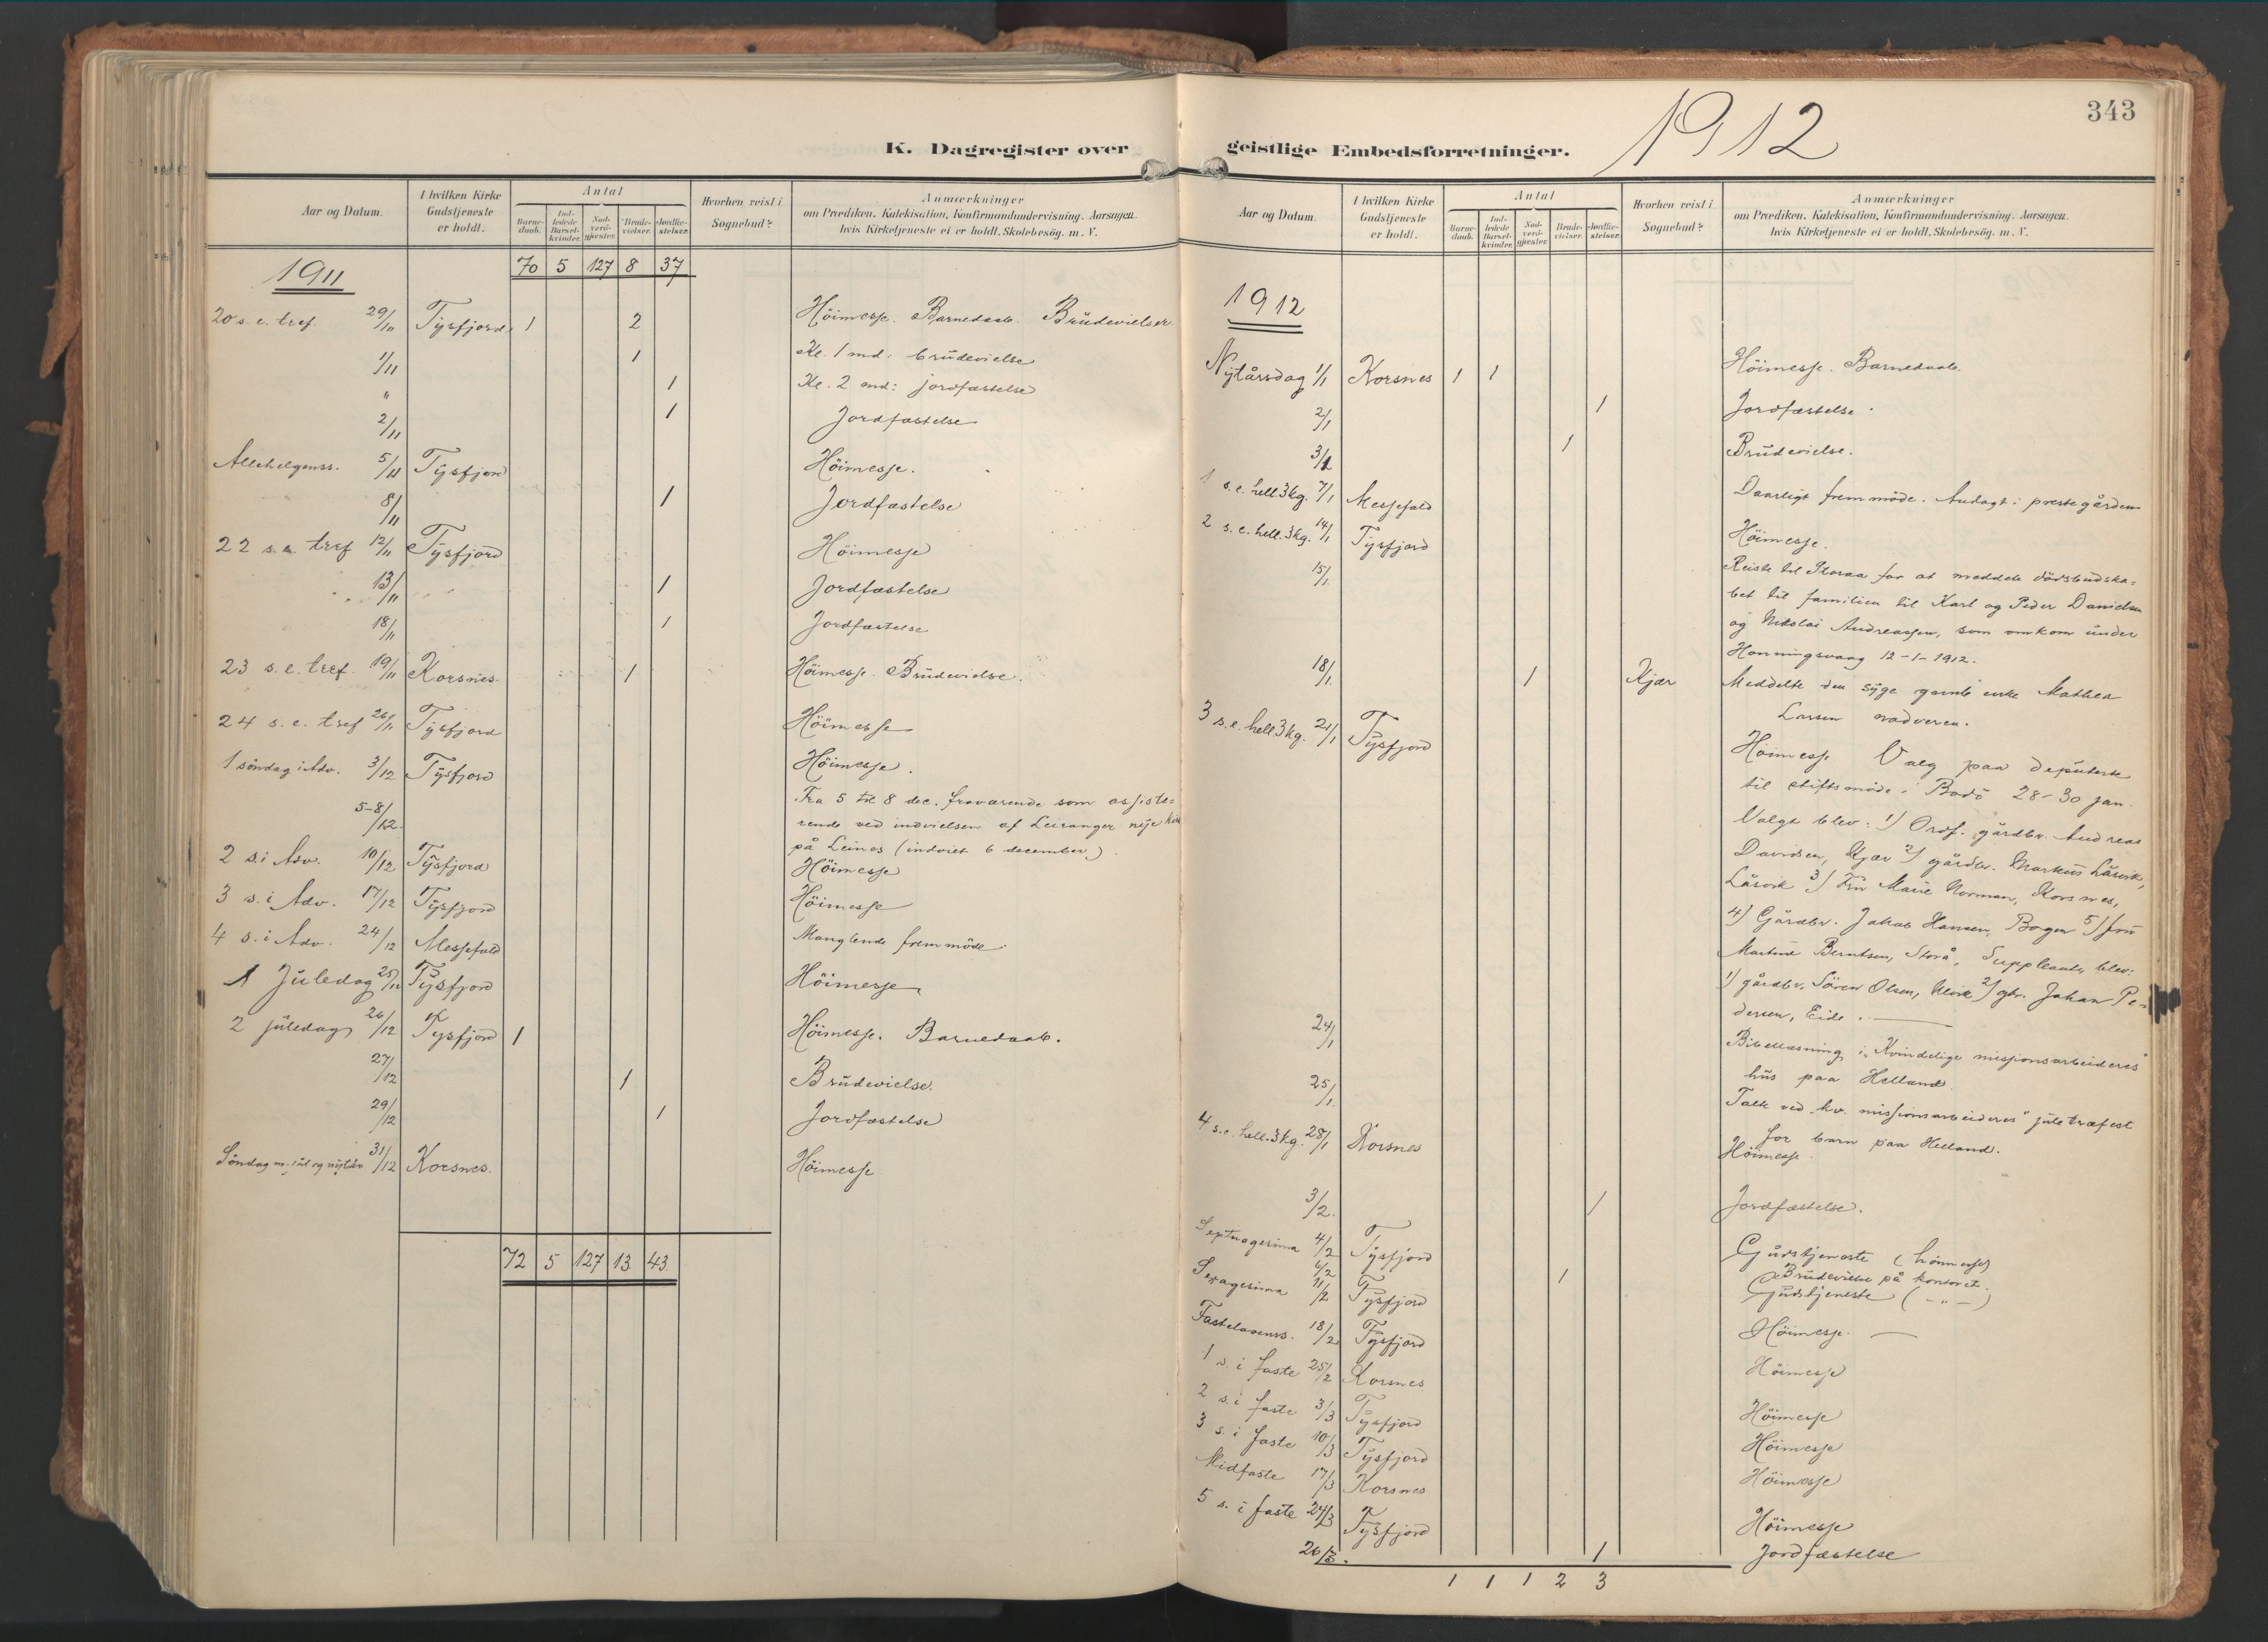 K. Dagregister over
Aar og Datum.
I hvilken Kirke Gudstjeneste er holdt.
Antal
Barne-daab.
Ind-ledede Barsel-kvinder.
Nad-verd-gjæster.
Brude-vielser.
Jordfæ-stelser.
Hvorhen reist i Sognebud?
Anmærkninger
om Prædiken. Katekisation, Konfirmandundervisning. Aarsagen.
hvis Kirketjeneste ei er holdt. Skolebesög. m. V.
1911 70 5 127 8 37
20 s. e. tref. 29/10 Tysfjord 1 2 Höimesse. Barnedaab. Brudevielser.
1/11 1 Kl. 1 md: brudevielse
" 1 Kl. 2 md: jordfæstelse
2/11 1 Jordfæstelse
Allehelgenss. 5/11 Tysfjord Höimesse.
8/11 1 Jordfæstelse
22 s. e. tref 12/11 Tysfjord Höimesse
13/11 1 Jordfæstelse
18/11 1 Jordfæstelse
23 s. e. tref. 19/11 Korsnes. 1 Höimesse. Brudevielse.
24 s. e. tref 26/11 Tysfjord Höimesse
1 söndag i Adv. 3/12 Tysfjord Höimesse.
5-8/12. Fra 5 til 8 dec. fraværende som assiste=
rende ved indvielsen af Leiranger nye
på Leines (indviet 6 december).
2 s. i Adv. 10/12 Tysfjord Höimesse
3 s. i Adv. 17/12 Tysfjord Höimesse
4 s. i Adv. 24/12 Messefald Manglende fremmöde.
1 Juledag 25/12 Tysfjord Höimesse
2 juledag 26/12 Tysfjord 1 Höimesse. Barnedaab.
27/12 1 Brudevielse.
29/12 1 Jordfæstelse
Söndag m. jul og nytår 31/12 Korsnes. Höimesse
72 5 127 13 43.
343
geistlige Embedsforretninger. 1912
Aar og Datum.
I hvilken Kirke Gudstjeneste er holdt.
Antal
Barne-daab.
Ind-ledede Barsel-kvinder.
Nad-verd-gjæster.
Brude-vielser.
Jordfæ-stelser.
Hvorhen reist i Sognebud?
Anmærkninger
om Prædiken. Katekisation, Konfirmandundervisning. Aarsagen.
hvis Kirketjeneste ei er holdt. Skolebesög. m. V.
1912
Nytårsdag 1/1 Korsnes 1 1 Höimesse. Barnedaab.
2/1 1 Jordfæstelse.
3/1 1 Brudevielse.
1 s. e. hell. 3 kg. 7/1 Messefald Daarligt fremmöde. Andagt i prestegården
2 s. e. hell. 3 kg. 14/1 Tysfjord Höimesse.
15/1. Reiste til Storaa for at meddele dödsbudska=
bet til familien til Karl og Peder Danielsen
og Nikolai Andreassen, som omkom under
Honningsvaag 12-1-1912.
18/1. 1 Kjær Meddelte den syge gamle enke Mathea
Larsen nadveren.
3 s. e. hell 3 kg. 21/1 Tysfjord Höimesse. Valg paa deputerte
til stiftsmöde i Bodö 28-30 jan.
Valgt blev: 1) Ordf. gårdbr. Andreas
Davidsen, Kjær 2) gårdbr. Markus
3) Fru Marie Norman, Korsnes,
4) Gårdbr. Jakob Hansen, Bogen 5) fru
Martine Berntsen, Storå. Suppleanter blev:
1) gårdbr. Sören Olsen, 2) gbr. Johan Pe=
dersen, Eide.
24/1 Bibellæsning i "Kvindelige missionsarbeideres"
hus paa Helland.
25/1. Tale ved "kv. missionsarbeideres" juletræfest
for barn paa Helland.
4 s. e. hell. 3 kg. 28/1 Korsnes Höimesse.
3/2. 1 Jordfæstelse.
Septuagesima 4/2 Tysfjord Gudstjeneste (höimesse)
6/2 1 Brudevielse på kontoret.
Sexagesima 11/2 Tysfjord Gudstjeneste (-"-)
Fastelavnss. 18/2 Tysfjord Höimesse.
1 s. i faste 25/2 Korsnes Höimesse
2 s. i faste 3/3 Tysfjord Höimesse
3 s. i faste 10/3 Tysfjord Höimesse
Midfaste 17/3 Korsnes Höimesse
5 s. i faste 24/3 Tysfjord Höimesse
26/3. 1 Jordfæstelse
1 1 1 2 3